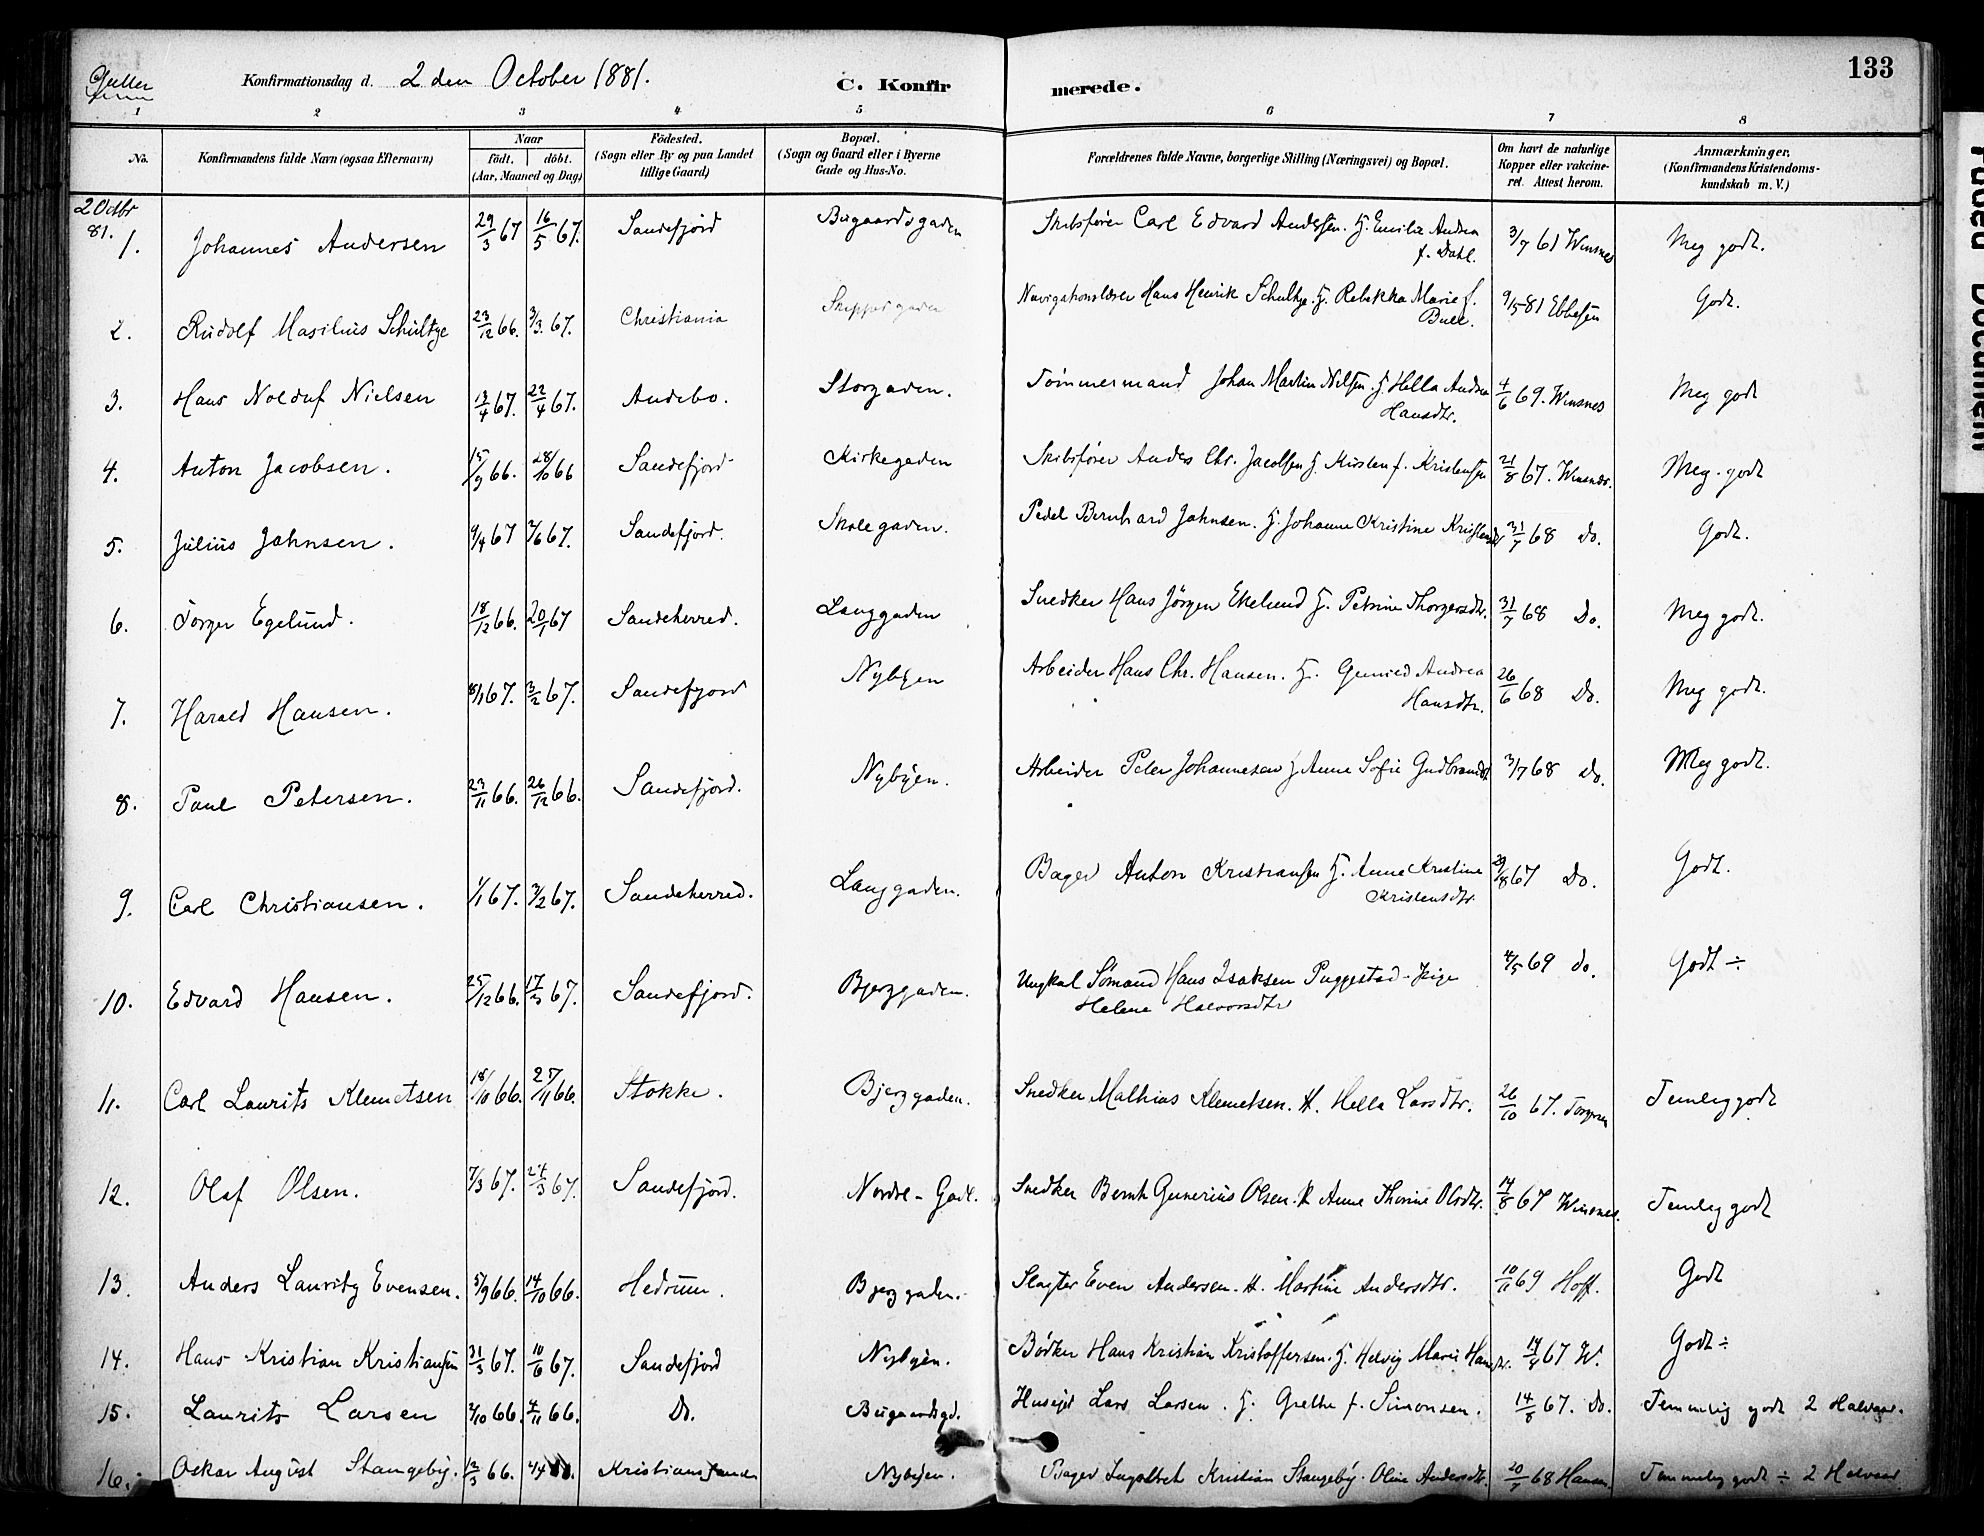 Konfirmationsdag d. 2 den October 1881.
C. Konfirmerede.
133
1 2 3 4 5 6 7 8
No.
Konfirmandens fulde Navn (ogsaa Efternavn)
Naar
födt. döbt.
(Aar, Maaned og Dag)
Födested.
(Sogn eller By og paa Landet
tillige Gaard)
Bopæl.
(Sogn og Gaard eller i Byerne
Gade og Hus-No.
Forældrenes fulde Navne, borgerlige Stilling (Næringsvei) og Bopæl.
Om havt de naturlige
Kopper eller vakcine-
ret. Attest herom.
Anmærkninger.
(Konfirmandens Kristendoms-
kundskab m. V.)
2 Octbr
81.
1. Johannes Andersen 29/3 67 16/5 67. Sandefjord Bugaardsgaden Skibsfører Carl Edvard Andersen. H. Emilie Andrea f. Dahl. 3/7 61 Winsnes Meg godt.
2. Rudolf Schultze 23/12 66. 3/3. 67. Christiania Skippergaden Navigationslærer Hans Henrik Schultze. H. Rebekka Marie f. Bull. 9/5 81 Ebbesen Godt.
3. Hans Nielsen 13/4 67. 22/4 67. Andebo. Storgaden. Tömmermand Johan Martin Nilsen. H. Hella Andrea Hansdtr. 4/6 69. Winsnes Meg godt
4. Anton Jacobsen. 15/9 66. 28/10 66 Sandefjord Kirkegaden Skibsfører Anders Chr. Jacobsen H. Kirsten f. Kristensen 21/8 67. Winsnes. Meg. godt
5. Julius Jahnsen. 9/4 67 7/6 67. Sandefjord. Skolegaden. Pedel Bernhard Jahnsen. H. Johanne Kristine 31/7 68 Do. Godt.
6. Torger Egelund. 18/12 66. 20/1 67 Sandeherred. Langgaden Snedker Hans Jörgen Ekelund H. Petrine Thorgersdtr. 31/7 68 Do. Meg godt.
7. Harald Hansen. 8/1 67. 3/2 67. Sandefjord Nybyen Arbeider Hans Chr. Hansen. H. Andrea Hansdtr. 26/6 68 Do. Meg godt.
8. Paul Petersen. 23/11 66. 26/12 66. Sandefjord. Nybyen. Arbeider Peter Johannesen H Anne Sofie 3/7 68 Do. Meg godt.
9. Carl Christiansen. 1/1 67. 3/2 67. Sandeherred. Langgaden. Bager Anton Kristiansen H. Anne Kristine Kristensdtr. 29/8 67 Do. Godt.
10. Edvard Hansen. 25/12 66. 17/3 67. Sandefjord. Bjerggaden. Ungkal Sömand Hans Isaksen Puggestad - Pige
Helene Halvorsdtr 4/5 69 do. Godt ÷
11. Carl Laurits Klemetsen 18/10 66. 27/11 66. Stokke. Bjerggaden. Snedker Mathias Klemetsen. H. Hella Larsdtr. 26/10 67. Temlig godt
12. Olaf Olsen. 7/3 67. 24/3 67. Sandefjord. Nordre - Gade. Snedker Bernh Gunerius Olsen. H Anne Thorine Olsdtr. 14/8 67 Winsnes. Temlig godt
13. Anders Lauritz Evensen. 5/9 66. 14/10 66. Hedrum. Bjerggaden. Slagter Even Andersen. H. Martine Andersdtr. 10/11 69 Hoff. Godt
14. Hans Kristian Kristiansen 31/3 67. 10/6 67. Sandefjord Nybyen. Bödker Hans Kristian Kristoffersen. H. Helvig Marie 14/8 67 W. Godt ÷
15. Laurits Larsen 2/10 66. 4/11 66. Do. Bugaardsgd. Lars Larsen. H. Grethe f. Simonsen. 14/8 67. Do. Temmlig godt 2 Halvaar.
16. Oskar August Stangeby. 12/3 66. Kristianssand Nybyen. Bager Kristian Stangeby. Oline Andersdtr. 20/7 68 Hansen. Temmlig godt ÷ 2 Halvaar
Faded Document